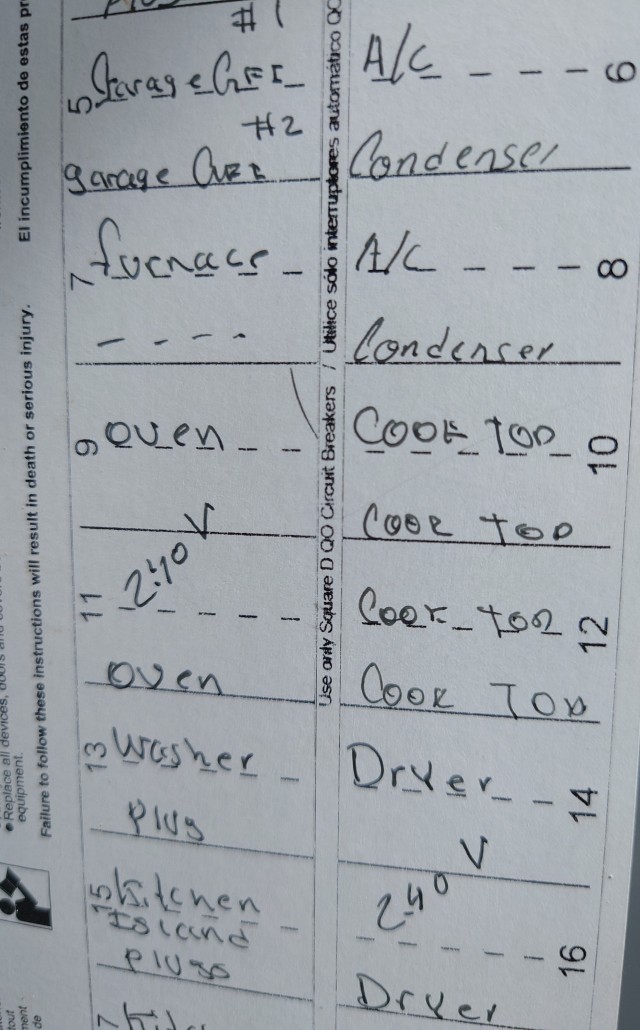 #1
5 Garage GFI
#2
garage GFI
7 furnace
9 oven
V
11 240
oven
13 washer
plug
15 Kitchen
Island
plugs
7
A/C 6
Condenser
A/C 8
Condenser
Cook top 10
Cook top
Cook top 12
Cook Top
Dryer 14
V
240
16
Dryer
Use only Square D QO Circuit Breakers / Utilice sólo interruptores automático QO
El incumplimiento de estas
Failure to follow these instructions will result in death or serious injury.
• Replace all devices, doors and
equipment.